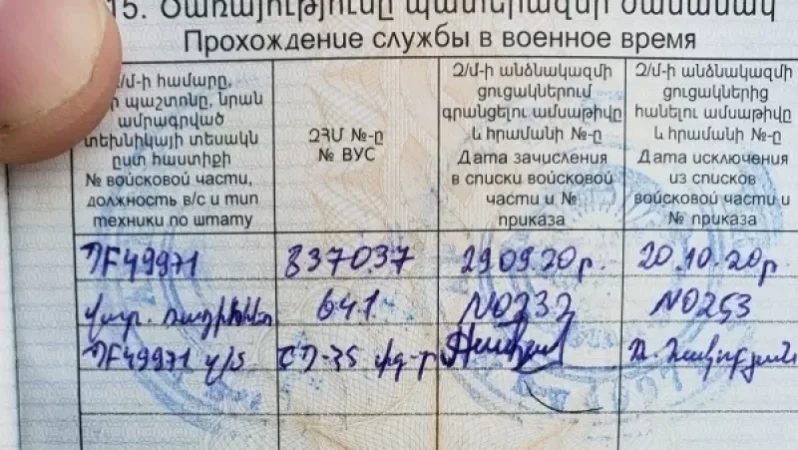 15. Ծառայությունը պատերազմի ժամանակ
Прохождение службы в военное время
Զ/մ-ի համարը,
պաշտոնը, նրան
ամրագրված
տեխնիկայի տեսակն
ըստ հաստիքի
№ войсковой части,
должность в/с и тип
техники по штату
ԶՀՄ №-ը
№ ВУС
Զ/մ-ի անձնակազմի
ցուցակներում
գրանցելու ամսաթիվը
և հրամանի №-ը
Дата зачисления
в списки войсковой
части и №
приказа
Զ/մ-ի անձնակազմի
ցուցակներից
հանելու ամսաթիվը
և հրամանի №-ը
Дата исключения
из списков
войсковой части и
№ приказа
49971 837037 29.09.20թ. 20.10.20թ.
641 N0232 N0253
49971